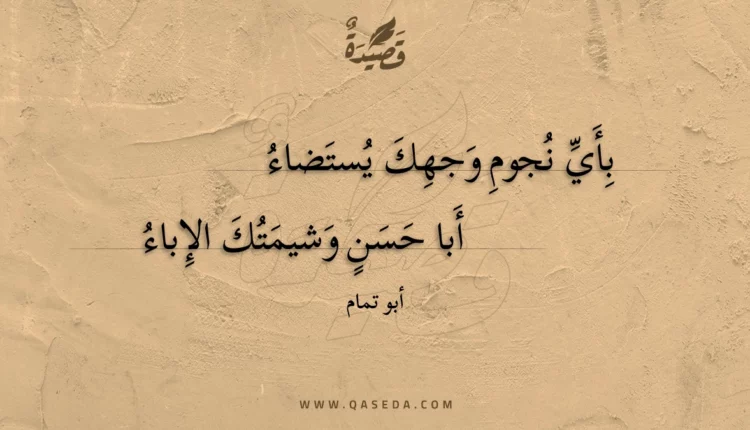 قَصِيْدَةٌ
بِأَيِّ نُجومِ وَجهِكَ يُستَضاءُ
أَبا حَسَنٍ وَشيمَتُكَ الإِباءُ
أبو تمام
WWW.QASEDA.COM